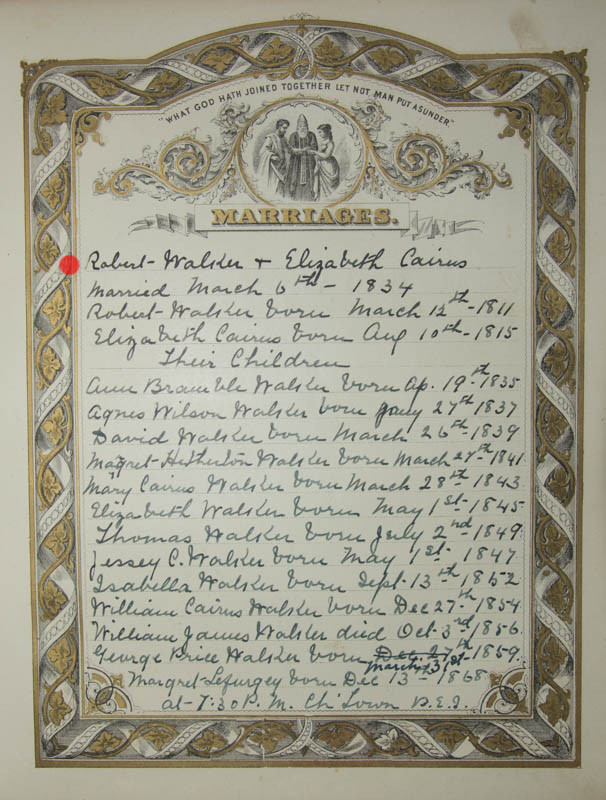 "WHAT GOD HATH JOINED TOGETHER LET NOT MAN PUT ASUNDER"
MARRIAGES.
Robert Walker + Elizabeth Cairns
Married March 6th - 1834
Robert Walker born March 12th - 1811
Elizabeth Cairns born Aug 10th - 1815
Their Children
Ann Bramble Walker born Ap. 19th 1835
Agnes Wilson Walker born Jany 27th 1837
David Walker born March 26th 1839
Magret Walker born March 1841
Mary Cairns Walker born March 28th 1843
Elizabeth Walker born May 1st - 1845
Thomas Walker born July 2nd 1849
Jessey C. Walker born May 1st - 1847
Isabella Walker born Sept 13th 1852
William Cairns Walker born Dec 27th 1854
William James Walker died Oct 3rd 1856
George Price Walker born Dec. 27th 1859
March 31st
Margret Lefurgey born Dec 13th 1868
at 7:30 P.M. Ch Town P.E.I.